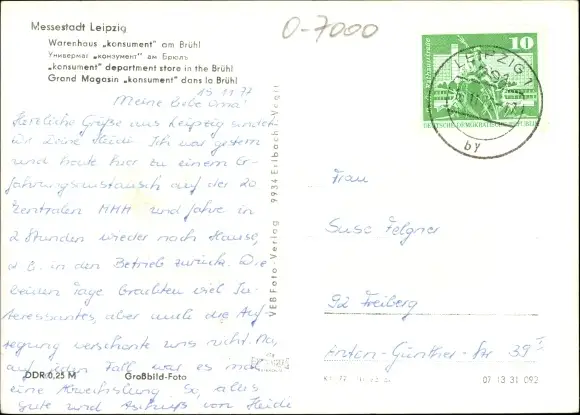 O-7000
Messestadt Leipzig
Warenhaus „konsument" am Brühl
Универмаг „конзумент" ам Брюль
„konsument" department store in the Brühl
Grand Magasin „konsument" dans la Brühl
19.11.77
Meine liebe Oma!
Herzliche Grüße aus Leipzig sendet
Dir Deine Heidi. Ich war gestern
und heute hier zu einem Er-
fahrungsaustausch auf der 20.
Zentralen MMM und fahre in
2 Stunden wieder nach Hause,
d. h. in den Betrieb zurück. Die
beiden Tage brachten viel In-
teressantes, aber auch die Auf-
regung verschonte uns nicht. Na,
auf jeden Fall war es mal
eine Abwechslung. So, alles
Gute und von Heidi
DDR 0,25 M
Großbild-Foto
VEB Foto-Verlag 9934 Erlbach-Vogtl
10
DEUTSCHE DEMOKRATISCHE REPUBLIK
LEIPZIG
by
Frau
Suse Felgner
92 Freiberg
Anton-Günther-Str 39
07 13 31 092